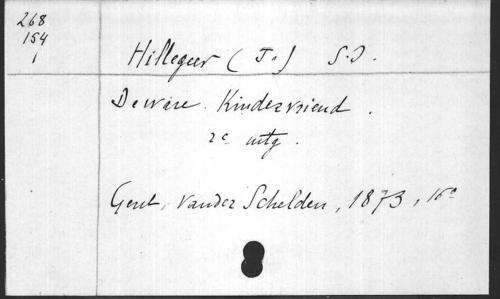 268
154
1
Hillegeer (J.) S.J.
De ware Kindervriend.
2e uitg.
Gent, Vander Schelden, 1873, 16°